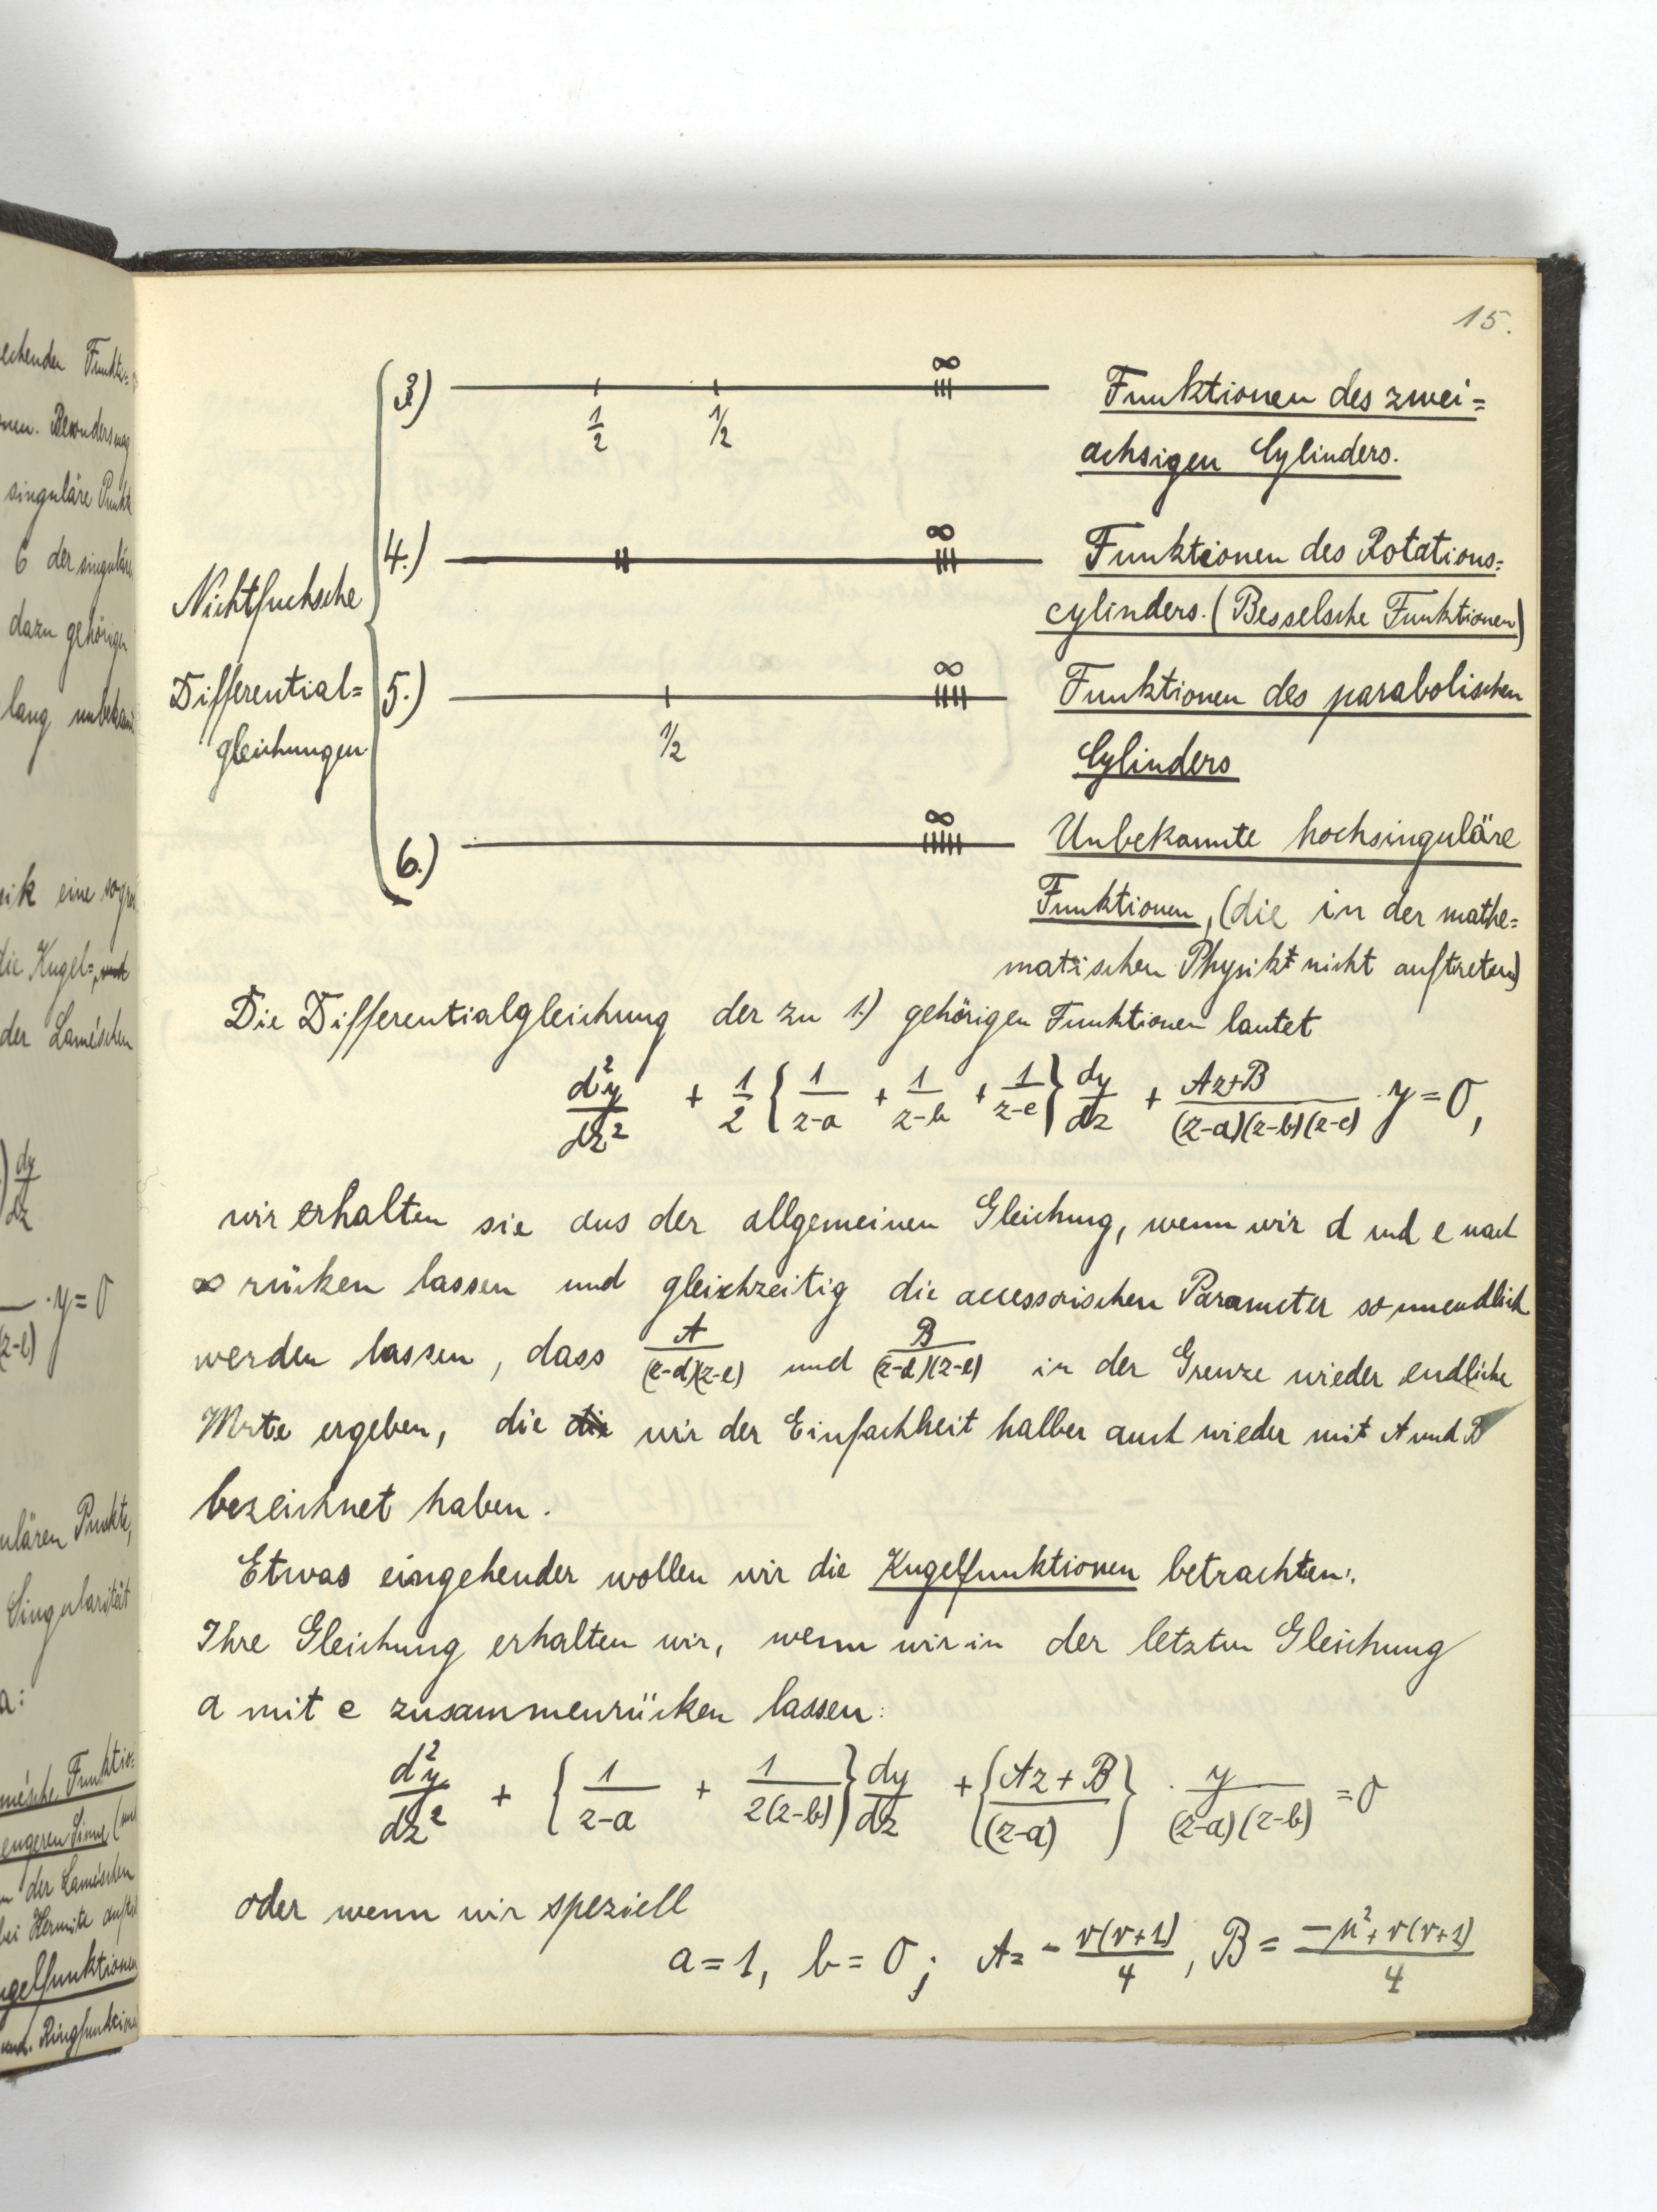 15.
3.) ∞ Funktionen des zwei=
1/2 1/2 achsigen Cylinders.
4.) ∞ Funktionen des Rotations=
Nichtfuchsche cylinders. (Besselsche Funktionen)
Differential= 5.) ∞ Funktionen des parabolischen
gleichungen 1/2 Cylinders
6.) ∞ Unbekannte hochsinguläre
Funktionen, (die in der mathe=
matischen Physik nicht auftreten)
Die Differentialgleichung der zu 1.) gehörigen Funktionen lautet
d²y/dz² + 1/2 {1/(z-a) + 1/(z-b) + 1/(z-c)} dy/dz + (Az+B)/((z-a)(z-b)(z-c)) · y = 0,
wir erhalten sie aus der allgemeinen Gleichung, wenn wir d und e nach
∞ rücken lassen und gleichzeitig die accessorischen Parameter so unendlich
werden lassen, dass A/((z-d)(z-e)) und B/((z-d)(z-e)) in der Grenze wieder endliche
Werte ergeben, die die wir der Einfachheit halber auch wieder mit A und B
bezeichnet haben.
Etwas eingehender wollen wir die Kugelfunktionen betrachten:
Ihre Gleichung erhalten wir, wenn wir in der letzten Gleichung
a mit c zusammenrücken lassen:
d²y/dz² + {1/(z-a) + 1/(2(z-b))} dy/dz + {(Az+B)/(z-a)} · y/((z-a)(z-b)) = 0
oder wenn wir speziell
a = 1, b = 0; A = - ν(ν+1)/4, B = (-μ²+ν(ν+1))/4
echenden
singuläre Punkt
6 der singuläre
dazu gehörigen
lang
eine
die Kugel= und
der Laméschen
) dy/dz
· y = 0
(z-e)
Punkte,
Singularität
a:
engeren Sinne
der Laméschen
bei Hermite